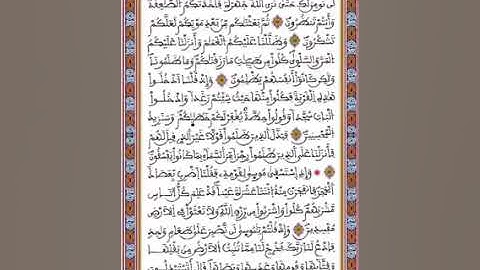 لن نومن لك حتى نرى الله جهرة فأخذتكم الصعقة
وأنتم تنظرون ثم بعثنكم من بعد موتكم لعلكم
تشكرون وظللنا عليكم الغمم وأنزلنا عليكم
المن والسلوى كلوا من طيبت ما رزقنكم وما ظلمونا
ولكن كانوا أنفسهم يظلمون وإذ قلنا ادخلوا
هذه القرية فكلوا منها حيث شئتم رغدا وادخلوا
الباب سجدا وقولوا حطة يغفر لكم خطيكم وسنزيد
المحسنين فبدل الذين ظلموا قولا غير الذي قيل لهم
فأنزلنا على الذين ظلموا رجزا من السماء بما كانوا يفسقون
وإذ استسقى موسى لقومه فقلنا اضرب بعصاك
الحجر فانفجرت منه اثنتا عشرة عينا قد علم كل أناس
مشربهم كلوا واشربوا من رزق الله ولا تعثوا في الأرض
مفسدين وإذ قلتم يموسى لن نصبر على طعام وحد
فادع لنا ربك يخرج لنا مما تنبت الأرض من بقلها
وقثائها وفومها وعدسها وبصلها قال أتستبدلون